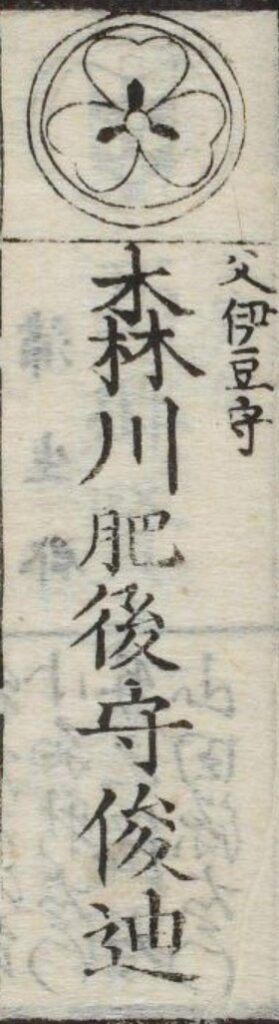 父伊豆守
森川肥後守俊迪